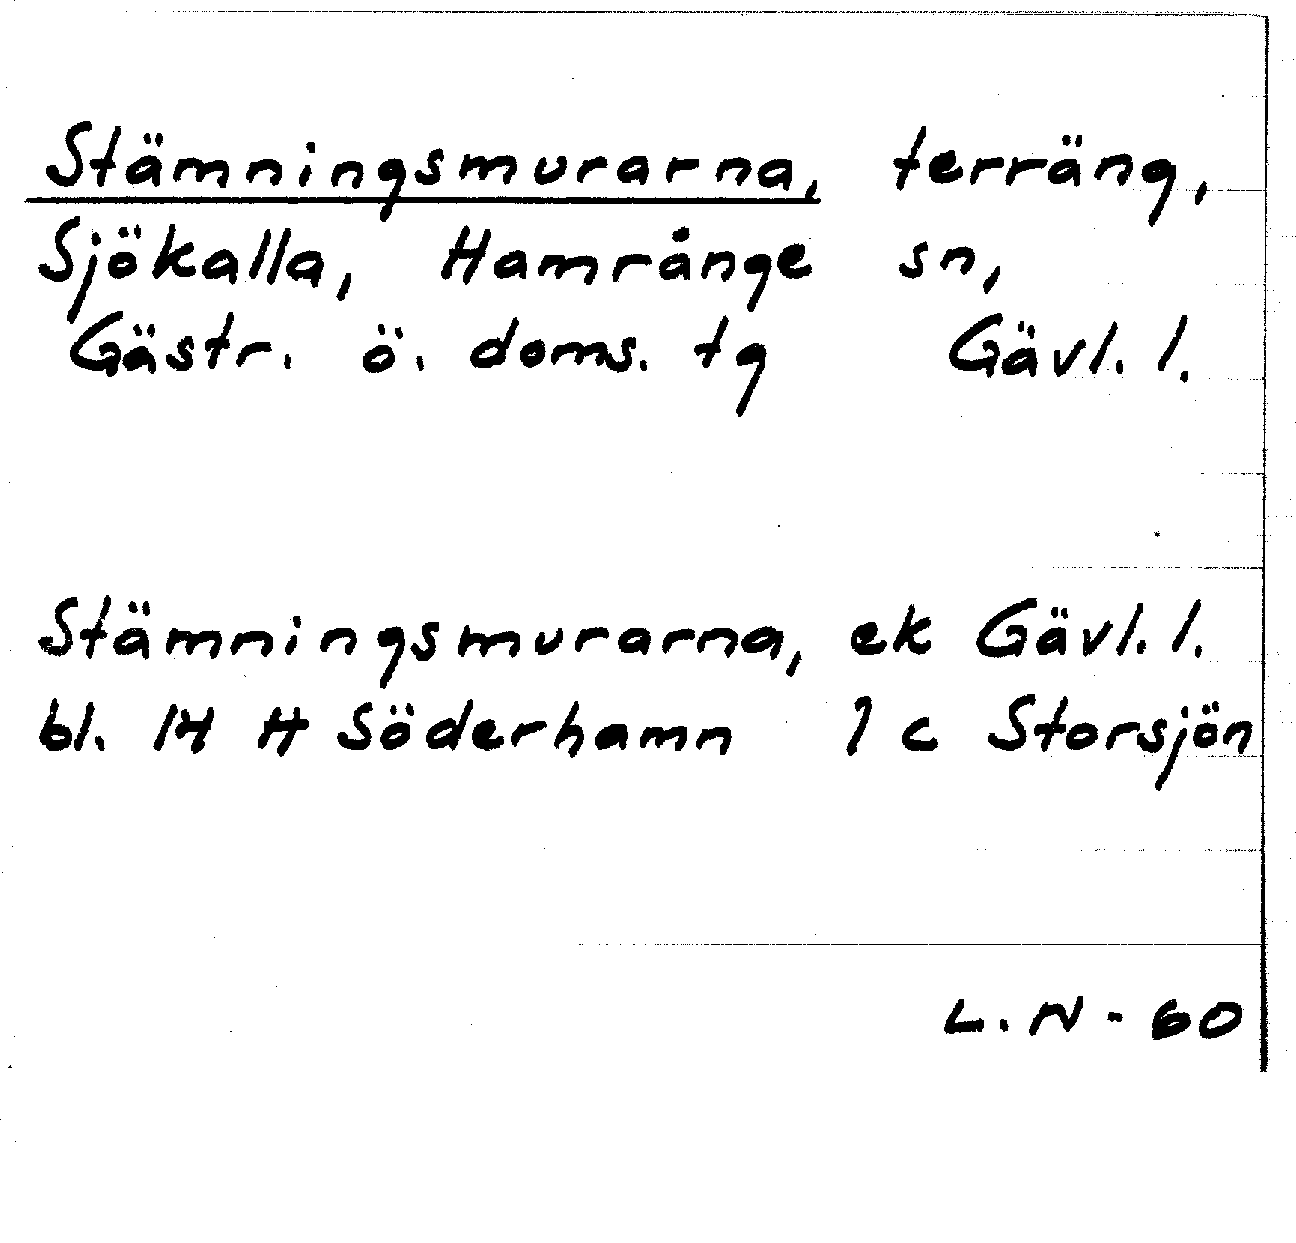 Stämningsmurarna, terräng,
Sjökalla, Hamrånge sn,
Gästr. ö. doms. tg Gävl. l.
Stämningsmurarna, ek Gävl. l.
bl. 14 H Söderhamn 1 c Storsjön
L. N - 60